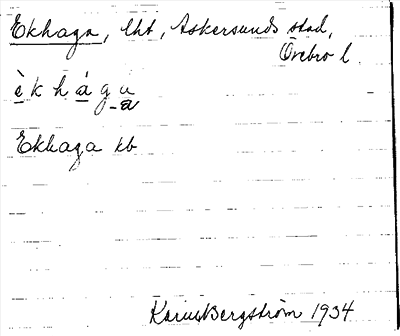 Ekhaga, lht, Askersunds stad,
Örebro l.
è k h á g a
Ekhaga kb
Karin Bergström 1934